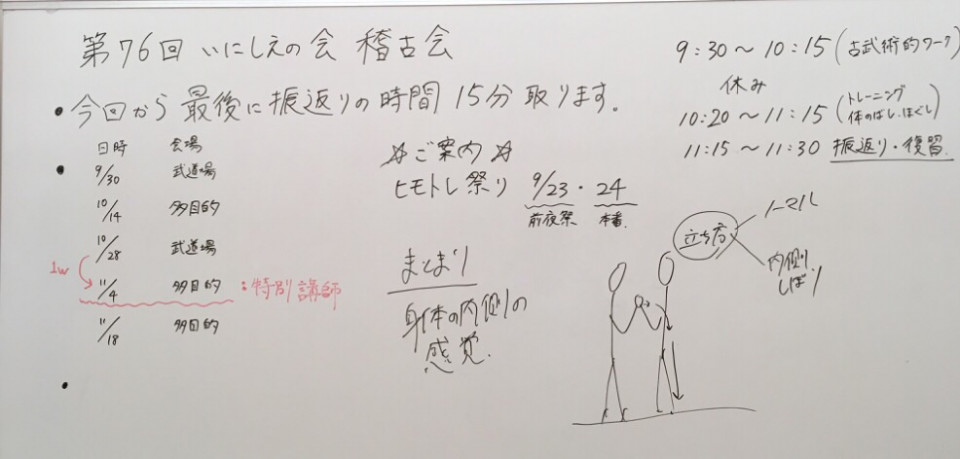 第76回 いにしえの会 稽古会
• 今回から 最後に 振返りの時間 15分 取ります.
日時 会場
• 9/30 武道場
10/14 多目的
10/28 武道場
1w
11/4 多目的 : 特別講師
11/18 多目的
•
☆ご案内☆
ヒモトレ祭り 9/23・24
前夜祭 本番
まとまり
身体の内側の
感覚.
9:30～10:15 (古武術的ワーク)
休み
10:20～11:15 (トレーニング
体のばし・ほぐし)
11:15～11:30 振返り・復習
立ち方
ノーマル
内側
しぼり